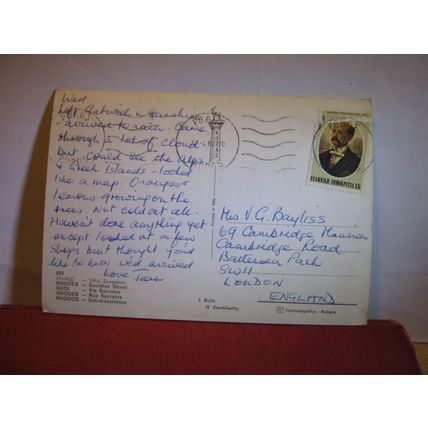 Wed
Left Gatwick in sunshine
- arrived to rain. Came
through a lot of cloud
but could see the Alps
& Greek Islands - looked
like a map. Oranges &
lemons growing on the
trees. Not cold at all.
Haven't done anything yet
except looked at a few
shops but thought you'd
like to know we'd arrived
Love Jean
RHODES - Socrates Street
RODI - Via Socrates
RHODES - Rue Socrates
RHODOS - Sokratesstrasse
ΕΛΛΗΝΙΚΗ ΔΗΜΟΚΡΑΤΙΑ 15
Mrs V.G. Bayliss
69 Cambridge Mansions
Cambridge Road
Battersea Park
SW11
LONDON
ENGLAND